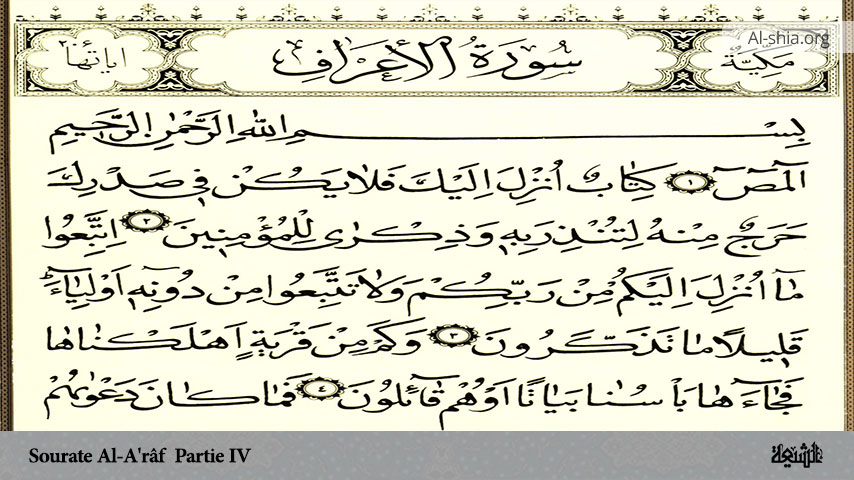 Al-shia.org
مَكِيَّةٌ سُورَةُ الْأَعْرَافِ اياتها
بِسْمِ اللهِ الرَّحْمٰنِ الرَّحٖيمِ
الٓمٓصٓ ﴿١﴾ كِتَابٌ اُنْزِلَ اِلَيْكَ فَلَا يَكُنْ فٖى صَدْرِكَ
حَرَجٌ مِنْهُ لِتُنْذِرَ بِهٖ وَذِكْرٰى لِلْمُؤْمِنٖينَ ﴿٢﴾ اِتَّبِعُوا
مَٓا اُنْزِلَ اِلَيْكُمْ مِنْ رَبِّكُمْ وَلَا تَتَّبِعُوا مِنْ دُونِهٖٓ اَوْلِيَٓاءَ
قَلٖيلًا مَا تَذَكَّرُونَ ﴿٣﴾ وَكَمْ مِنْ قَرْيَةٍ اَهْلَكْنَاهَا
فَجَٓاءَهَا بَاْسُنَا بَيَاتًا اَوْ هُمْ قَٓائِلُونَ ﴿٤﴾ فَمَا كَانَ دَعْوٰيهُمْ
Sourate Al-A'râf Partie IV
الشيعة